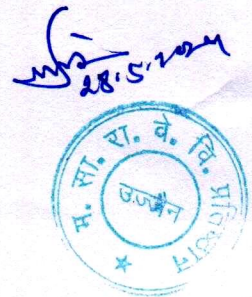 28.5.2024
म. सा. रा. वे. वि. प्रतिष्ठान
उज्जैन